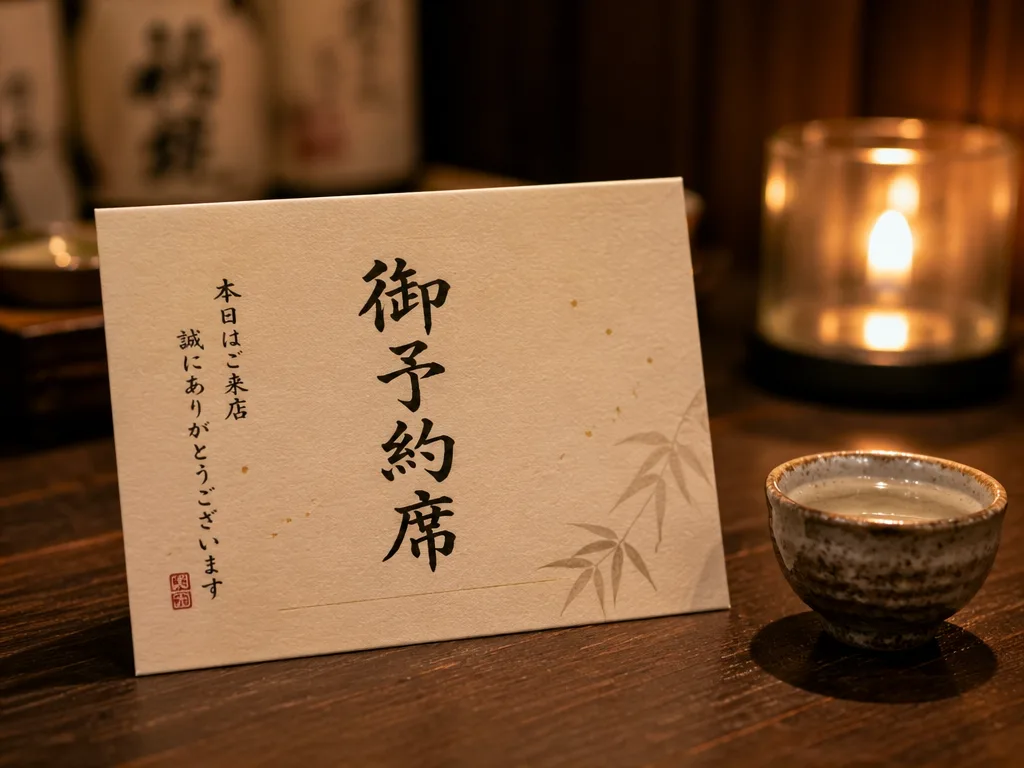 御予約席
本日はご来店
誠にありがとうございます